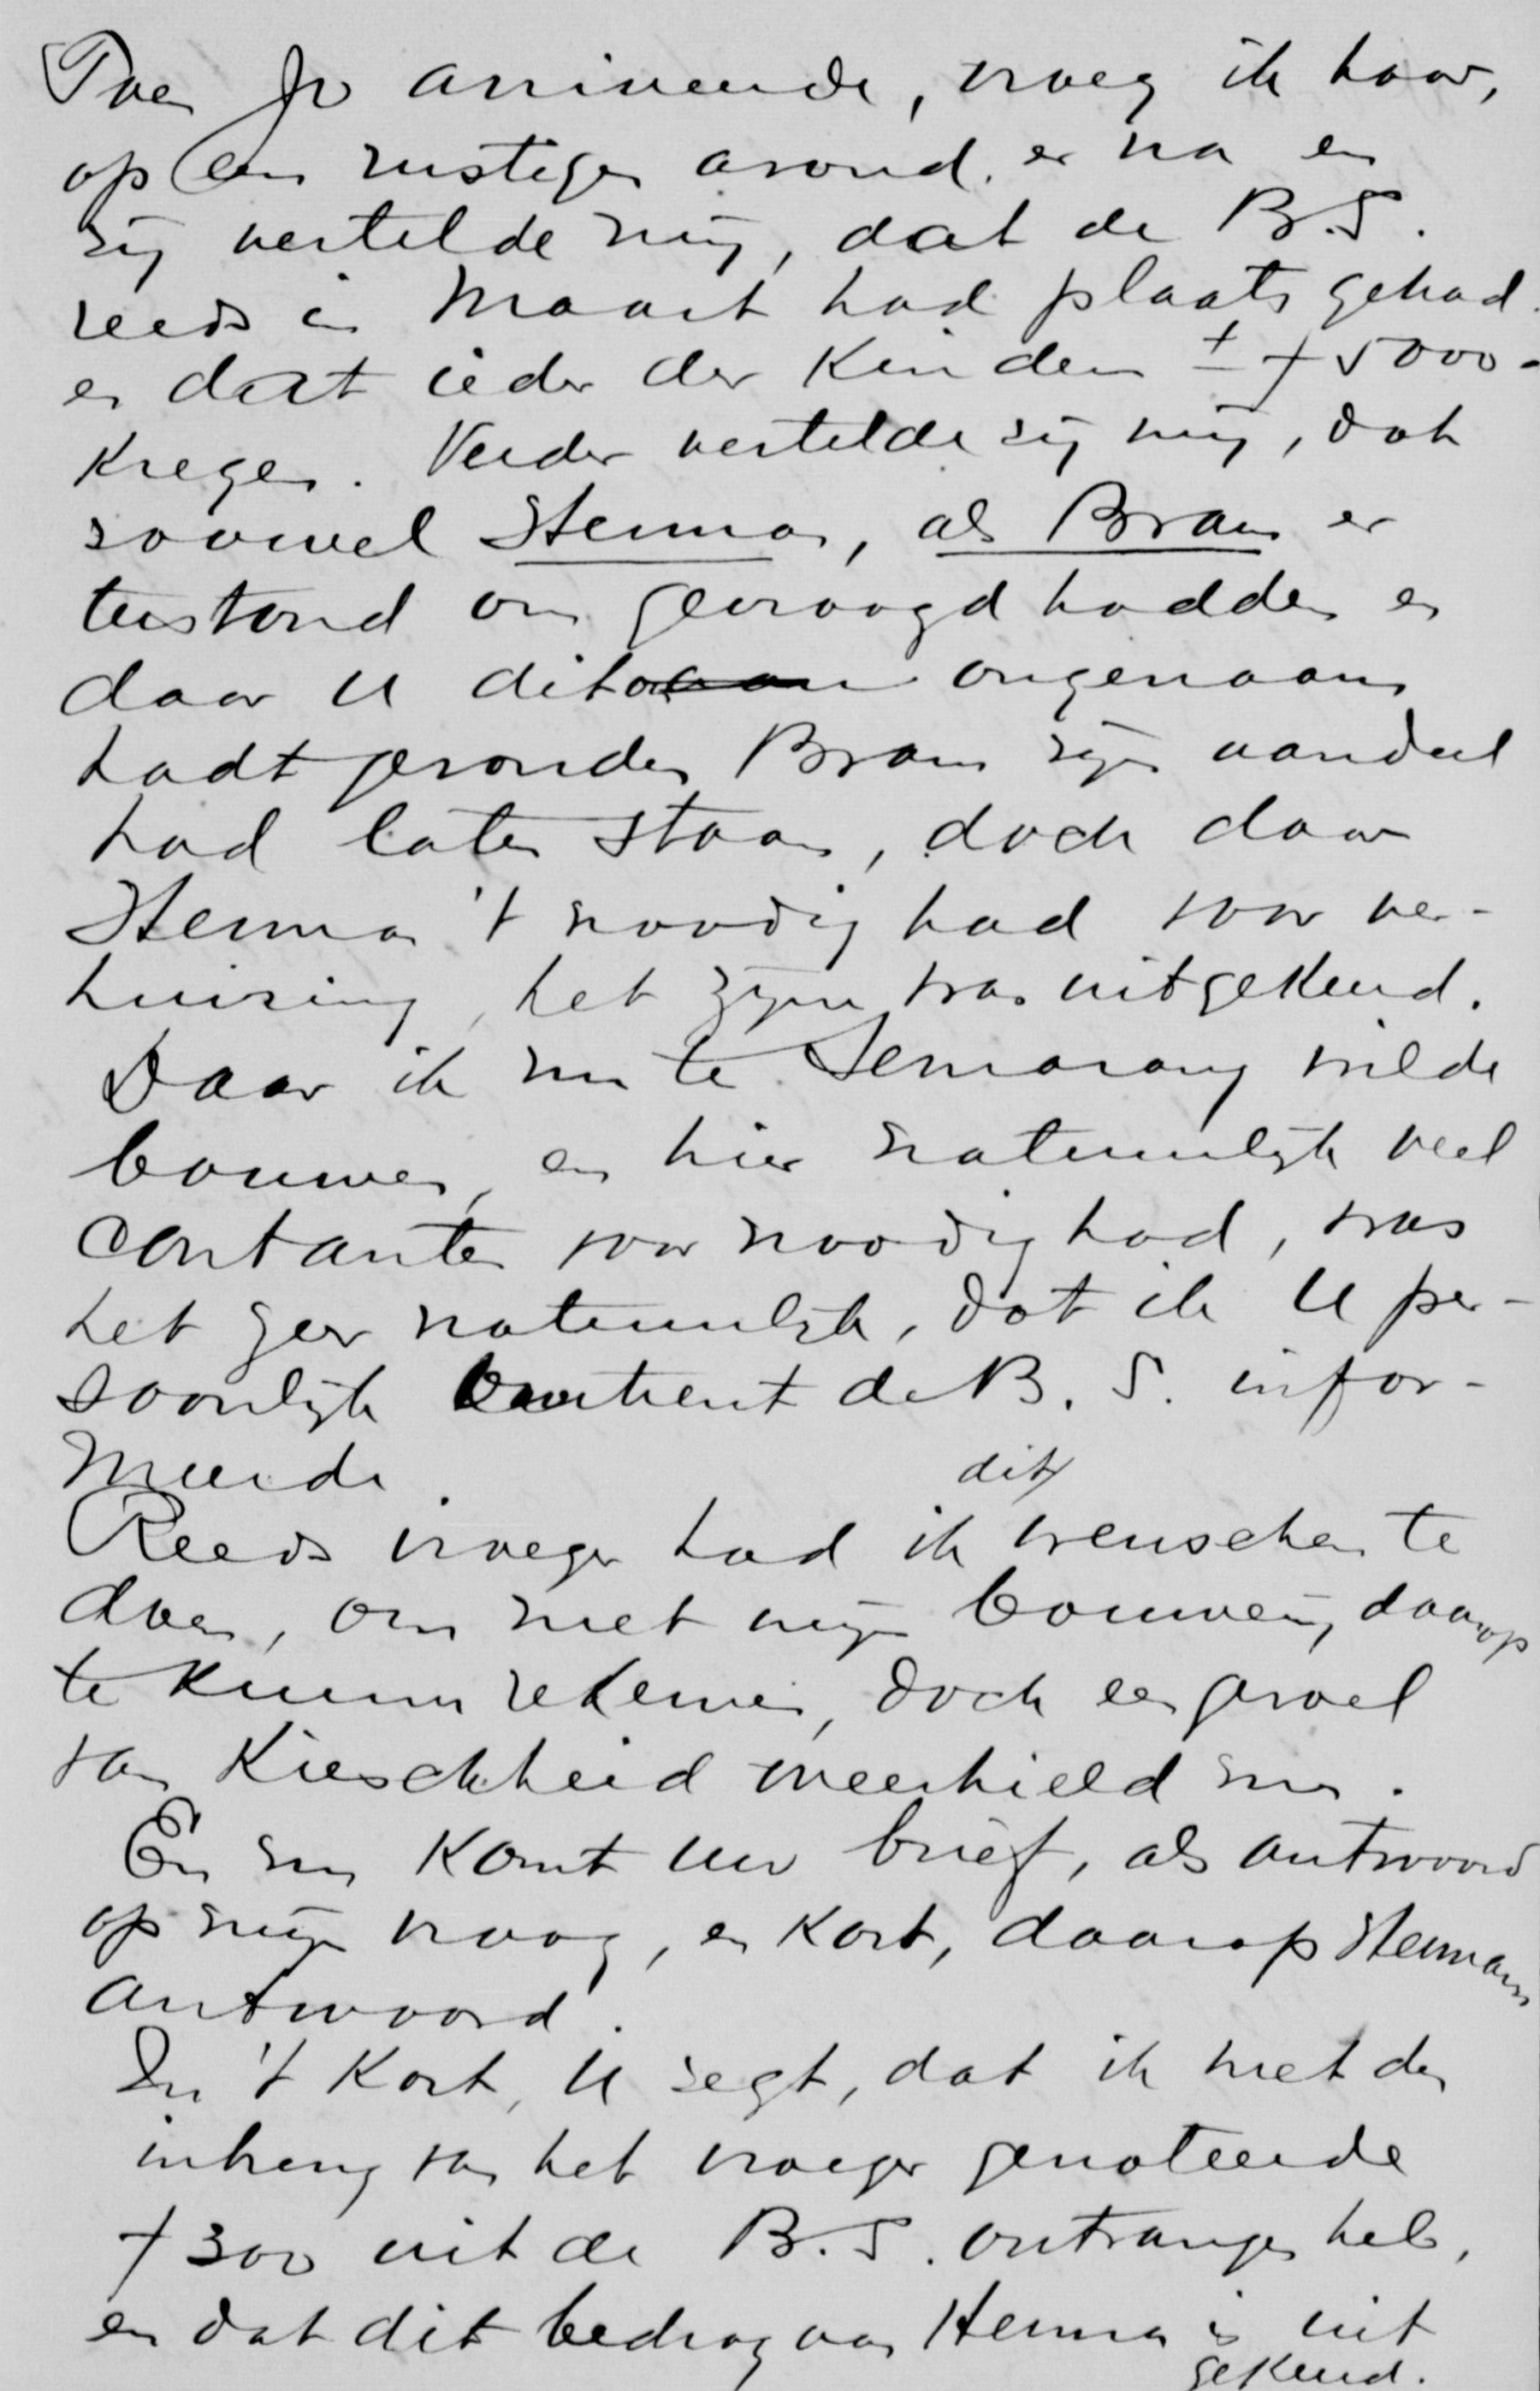 Toen Jo arriveerde, vroeg ik haar,
op een rustigen avond er na en
zij vertelde mij, dat de B.S.
reeds in Maart had plaats gehad.
en dat ieder der kinderen ± ƒ 5000.-
kregen. Verder vertelde zij mij, dat
zoowel Herman, als Bram er
terstond om gevraagd hadden en
daar U dit onaangenaam
hadt gevonden Bram zijn aandeel
had laten staan, doch daar
Herman 't noodig had voor ver-
huizing, het zijne was uitgekeerd.
Daar ik nu te Semarang wilde
bouwen, en hier natuurlijk veel
contanten voor noodig had, was
het zeer natuurlijk, dat ik U per-
soonlijk omtrent de B.S. infor-
meerde.
Reeds vroeger had ik dit wenschen te
doen, om met mijn bouwerij, daarop
te kunnen rekenen, doch een gevoel
van kieschheid weerhield me.
En nu komt uw brief, als antwoord
op mijn vraag, en kort, daarop Hermans
antwoord.
In 't kort, U zegt, dat ik met den
inbreng van het vroeger genoteerde
ƒ 300 uit de B.S. ontvangen heb,
en dat dit bedrag aan Herman is uit
gekeerd.